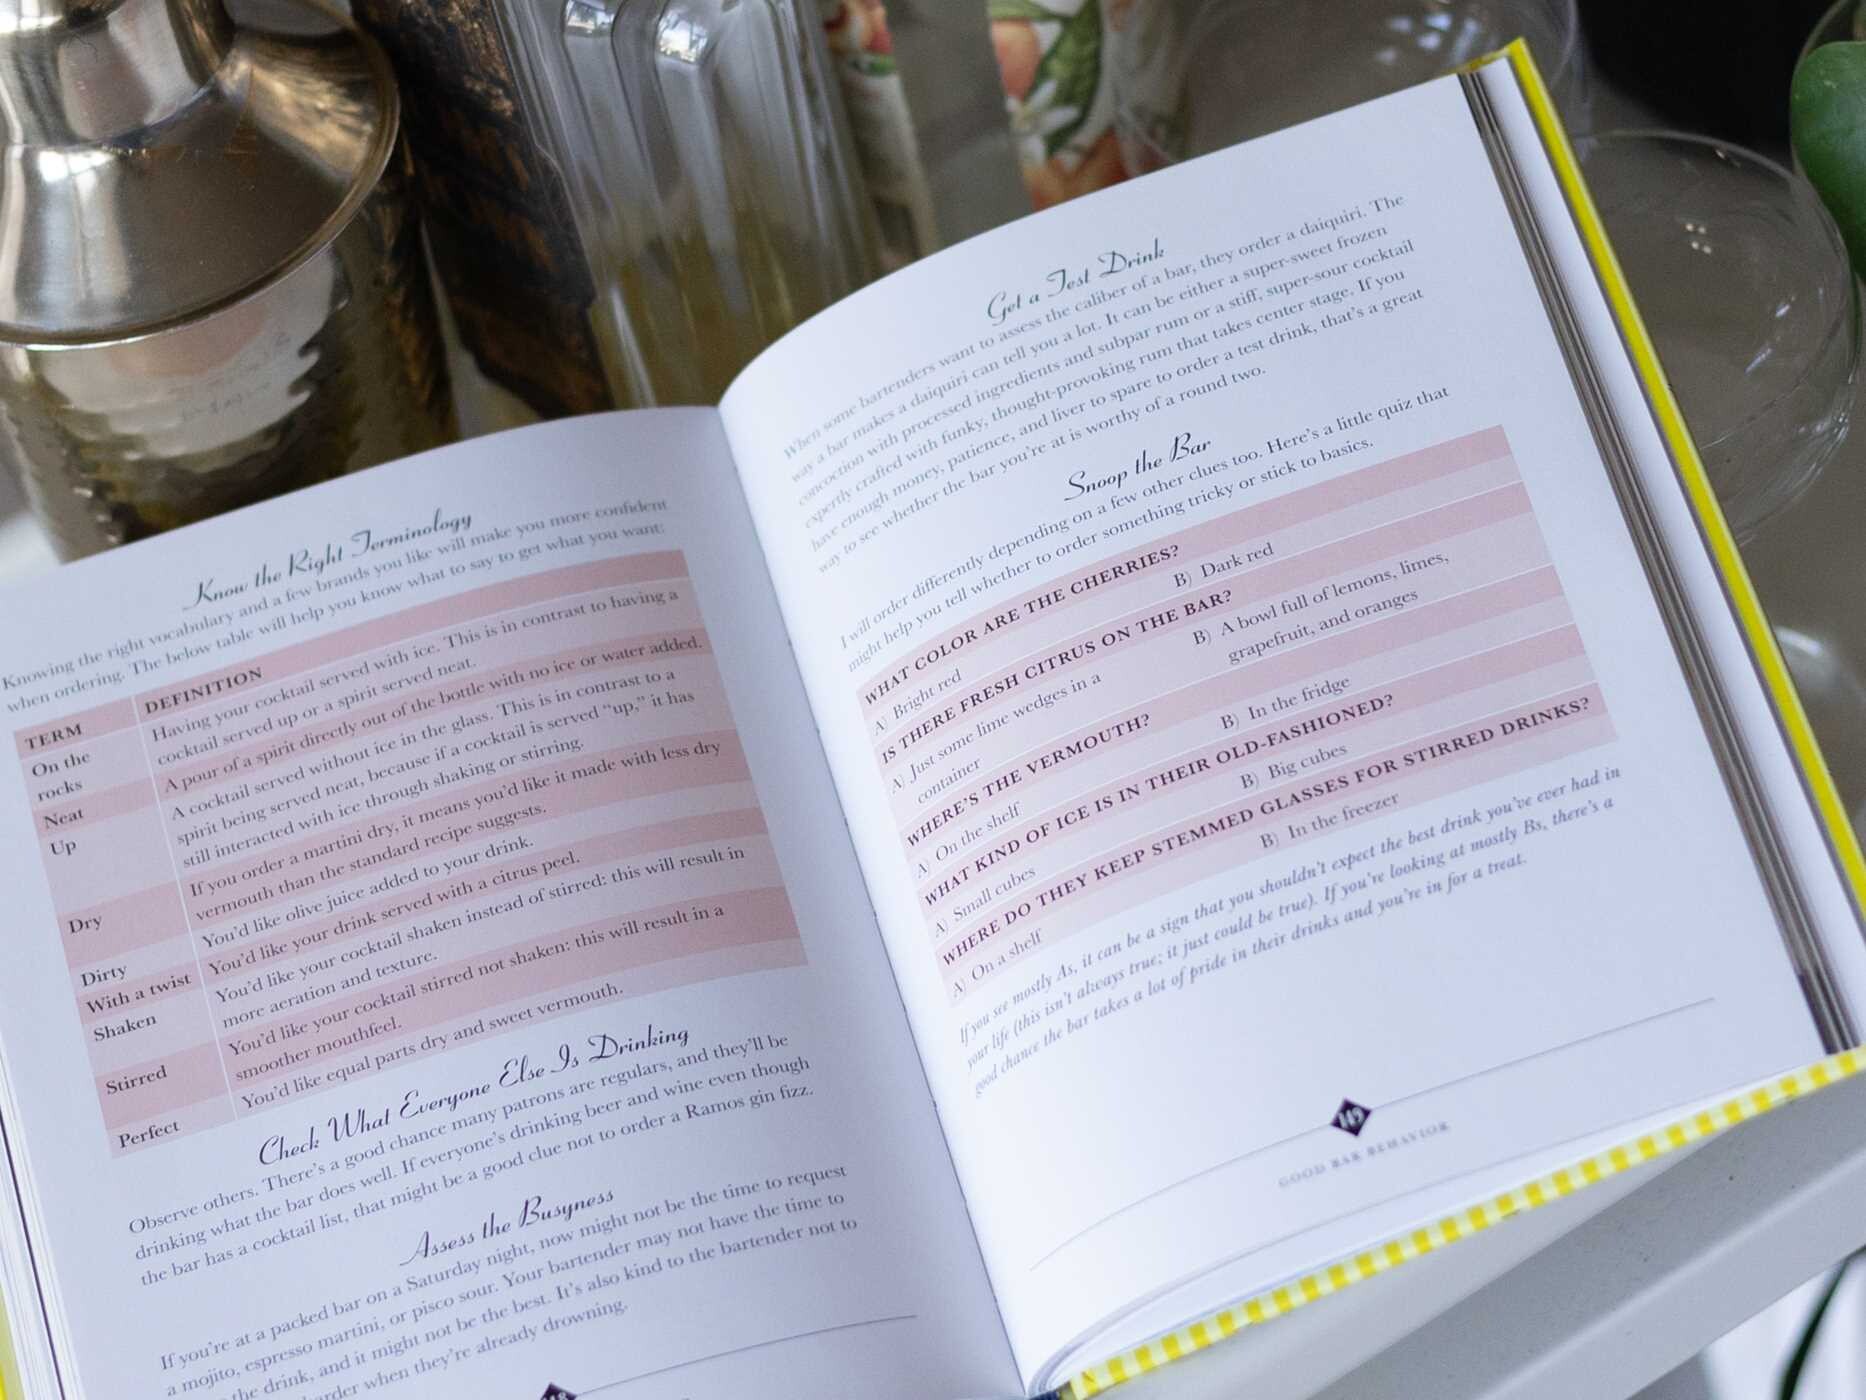 Know the Right Terminology
Knowing the right vocabulary and a few brands you like will make you more confident
when ordering. The below table will help you know what to say to get what you want:
TERM DEFINITION
On the rocks Having your cocktail served with ice. This is in contrast to having a
cocktail served up or a spirit served neat.
Neat A pour of a spirit directly out of the bottle with no ice or water added.
Up A cocktail served without ice in the glass. This is in contrast to a
spirit being served neat, because if a cocktail is served “up,” it has
still interacted with ice through shaking or stirring.
Dry If you order a martini dry, it means you’d like it made with less dry
vermouth than the standard recipe suggests.
Dirty You’d like olive juice added to your drink.
With a twist You’d like your drink served with a citrus peel.
Shaken You’d like your cocktail shaken instead of stirred: this will result in
more aeration and texture.
Stirred You’d like your cocktail stirred not shaken: this will result in a
smoother mouthfeel.
Perfect You’d like equal parts dry and sweet vermouth.
Check What Everyone Else Is Drinking
Observe others. There’s a good chance many patrons are regulars, and they’ll be
drinking what the bar does well. If everyone’s drinking beer and wine even though
the bar has a cocktail list, that might be a good clue not to order a Ramos gin fizz.
Assess the Busyness
If you’re at a packed bar on a Saturday night, now might not be the time to request
a mojito, espresso martini, or pisco sour. Your bartender may not have the time to
the drink, and it might not be the best. It’s also kind to the bartender not to
harder when they’re already drowning.
Get a Test Drink
When some bartenders want to assess the caliber of a bar, they order a daiquiri. The
way a bar makes a daiquiri can tell you a lot. It can be either a super-sweet frozen
concoction with processed ingredients and subpar rum or a stiff, super-sour cocktail
expertly crafted with funky, thought-provoking rum that takes center stage. If you
have enough money, patience, and liver to spare to order a test drink, that’s a great
way to see whether the bar you’re at is worthy of a round two.
Snoop the Bar
I will order differently depending on a few other clues too. Here’s a little quiz that
might help you tell whether to order something tricky or stick to basics.
WHAT COLOR ARE THE CHERRIES?
A) Bright red B) Dark red
IS THERE FRESH CITRUS ON THE BAR?
A) Just some lime wedges in a B) A bowl full of lemons, limes,
container grapefruit, and oranges
WHERE’S THE VERMOUTH?
A) On the shelf B) In the fridge
WHAT KIND OF ICE IS IN THEIR OLD-FASHIONED?
A) Small cubes B) Big cubes
WHERE DO THEY KEEP STEMMED GLASSES FOR STIRRED DRINKS?
A) On a shelf B) In the freezer
If you see mostly As, it can be a sign that you shouldn’t expect the best drink you’ve ever had in
your life (this isn’t always true; it just could be true). If you’re looking at mostly Bs, there’s a
good chance the bar takes a lot of pride in their drinks and you’re in for a treat.
149
GOOD BAR BEHAVIOR